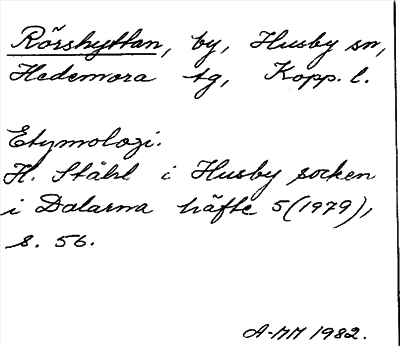 Rörshyttan, by, Husby sn,
Hedemora tg, Kopp. l.
Etymologi.
H. Ståhl i Husby socken
i Dalarna häfte 5(1979),
s. 56.
A-MM 1982.